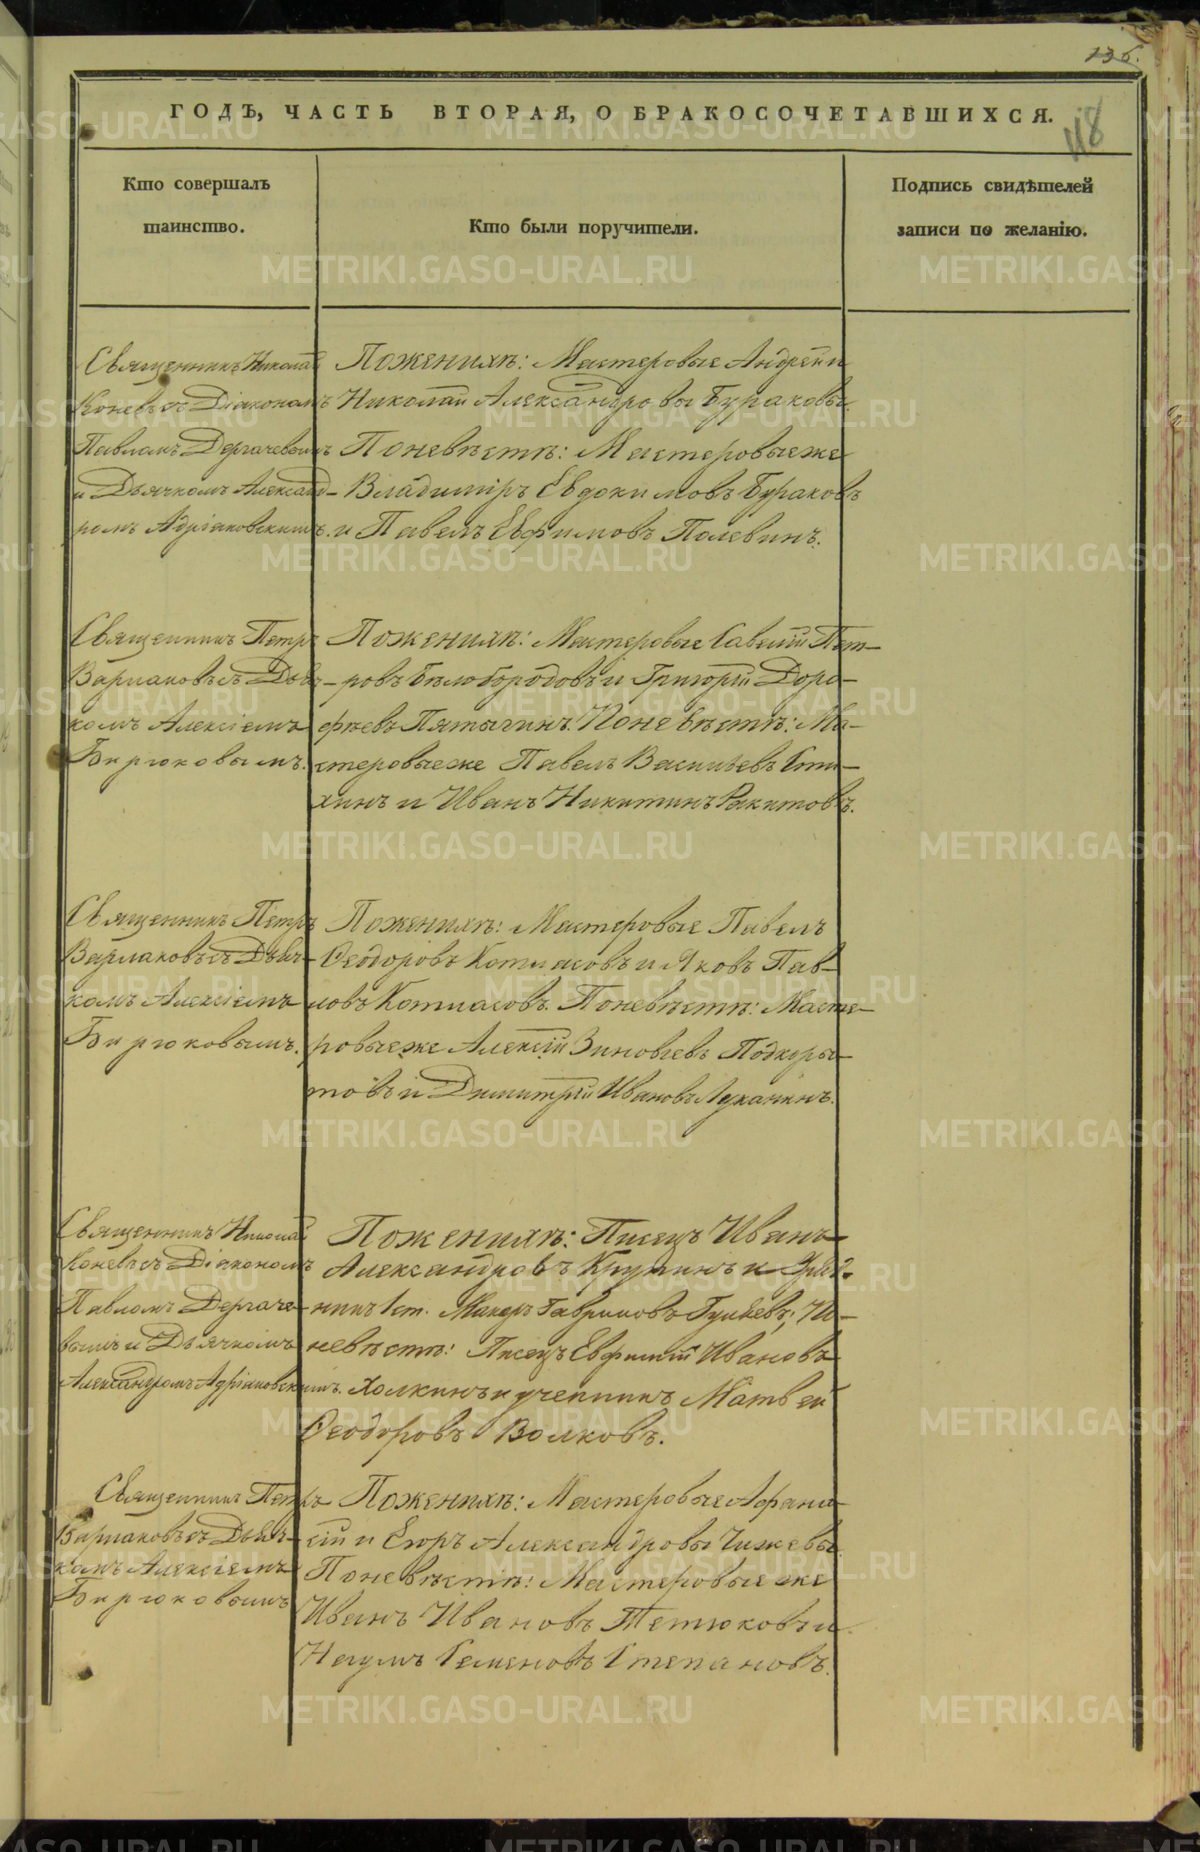 136.
118
ГОДЪ, ЧАСТЬ ВТОРАЯ, О БРАКОСОЧЕТАВШИХСЯ.
Кто совершалъ
таинство.
Кто были поручители.
Подпись свидѣтелей
записи по желанію.
Священникъ Николай
Коневъ съ Діакономъ
Павломъ Дергачевымъ
и Дьячкомъ Александ-
ромъ Адріановскимъ.
Поженихѣ: Мастеровые Андрей и
Николай Александровы Бураковы.
Поневѣстѣ: Мастеровые же
Владиміръ Евдокимовъ Бураковъ
и Павелъ Евфимовъ Полевинъ.
Священникъ Петръ
Варлаковъ съ Дьяч-
комъ Алексіемъ
Бирюковымъ.
Поженихѣ: Мастеровые Савелій Пет-
ровъ Бѣлобородовъ и Григорій Доро-
фѣевъ Пятыгинъ. Поневѣстѣ: Ма-
стеровые же Павелъ Васильевъ Сти-
хинъ и Иванъ Никитинъ Ракитовъ.
Священникъ Петръ
Варлаковъ съ Дьяч-
комъ Алексіемъ
Бирюковымъ.
Поженихѣ: Мастеровые Павелъ
Ѳеодоровъ Котласовъ и Яковъ Пав-
ловъ Котласовъ. Поневѣстѣ: Масте-
ровые же Алексій Зиновьевъ Подкоры-
товъ и Димитрій Ивановъ Луканинъ.
Священникъ Николай
Коневъ съ Діакономъ
Павломъ Дергаче-
вымъ и Дьячкомъ
Александромъ Адріановскимъ.
Поженихѣ: Писецъ Иванъ
Александровъ Крутинъ и
Гавриловъ По-
невѣстѣ: Писецъ Евфимій Ивановъ
Холкинъ и ученикъ Матвей
Ѳеодоровъ Волковъ.
Священникъ Петръ
Варлаковъ съ Дьяч-
комъ Алексіемъ
Бирюковымъ
Поженихѣ: Мастеровые Афана-
сій и Егоръ Александровы Чижевы
Поневѣстѣ: Мастеровые же
Иванъ Ивановъ Тетюковъ и
Наумъ Семеновъ Степановъ.